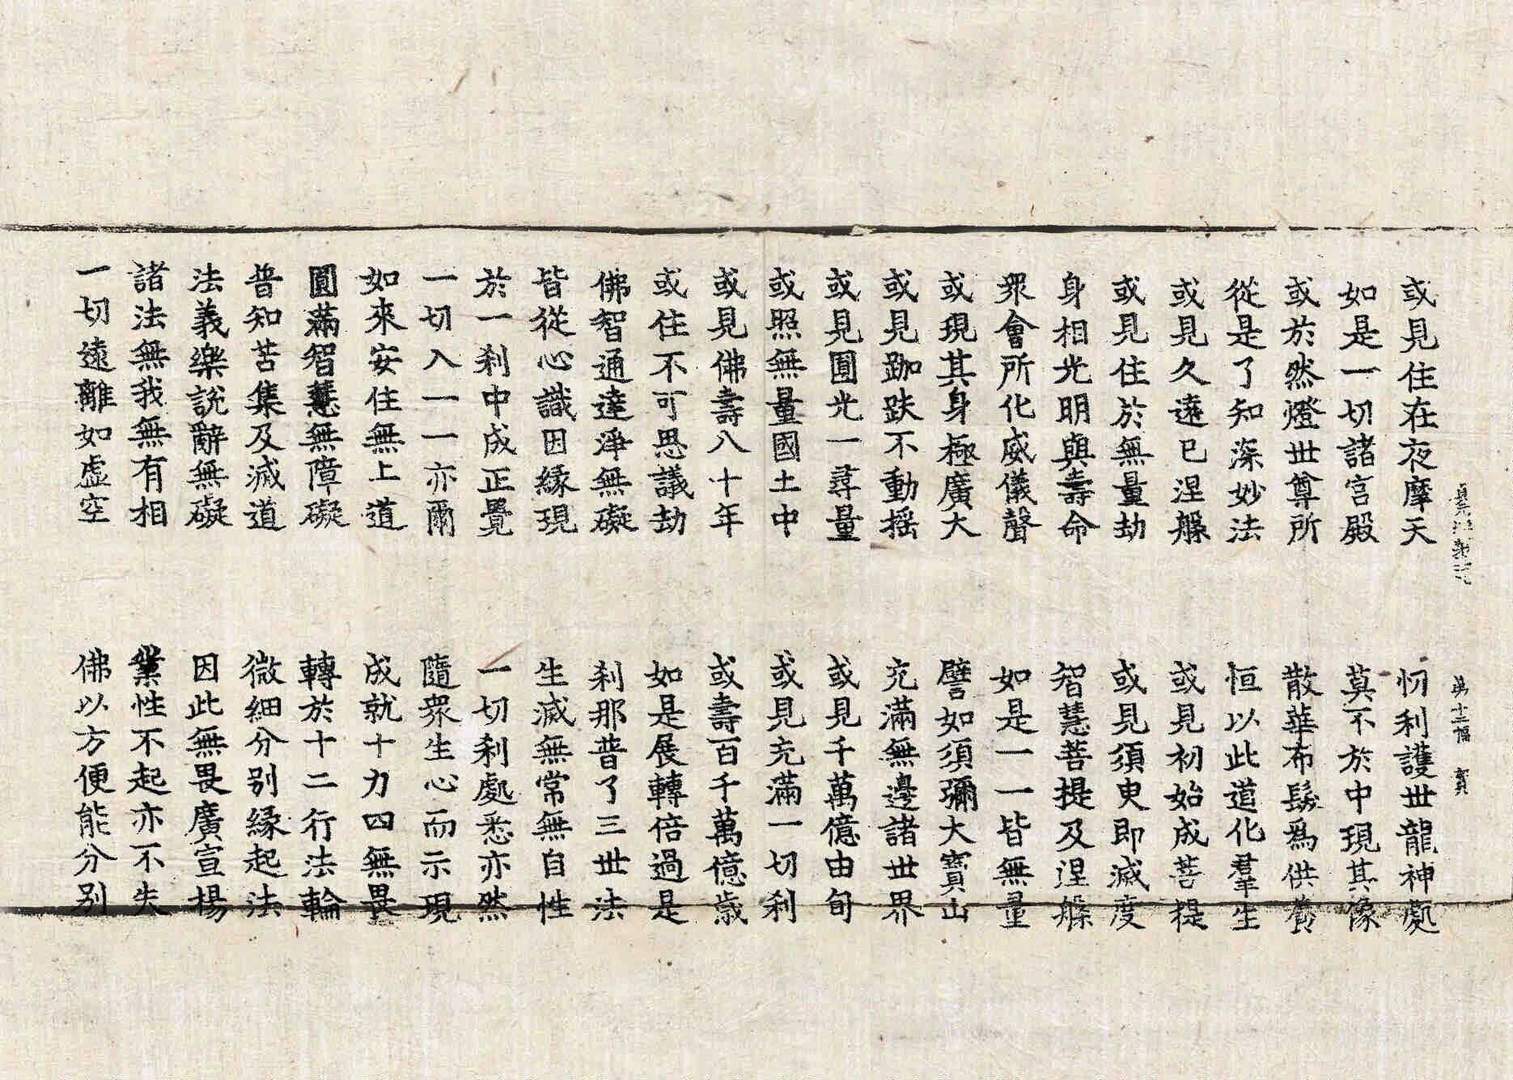 或見住在夜摩天 忉利護世龍神處
如是一切諸宮殿 莫不於中現其像
或於然燈世尊所 散華布髮爲供養
從是了知深妙法 恒以此道化羣生
或見久遠已涅槃 或見初始成菩提
或見住於無量劫 或見須臾即滅度
身相光明與壽命 智慧菩提及涅槃
衆會所化威儀聲 如是一一皆無量
或現其身極廣大 譬如須彌大寶山
或見跏趺不動搖 充滿無邊諸世界
或見圓光一尋量 或見千萬億由旬
或照無量國土中 或見充滿一切刹
或見佛壽八十年 或壽百千萬億歲
或住不可思議劫 如是展轉倍過是
佛智通達淨無礙 刹那普了三世法
皆從心識因緣現 生滅無常無自性
於一刹中成正覺 一切刹處悉亦然
一切入一一亦爾 隨衆生心而示現
如來安住無上道 成就十力四無畏
圓滿智慧無障礙 轉於十二行法輪
普知苦集及滅道 微細分别緣起法
法義樂說辭無礙 因此無畏廣宣揚
諸法無我無有相 業性不起亦不失
一切遠離如虛空 佛以方便能分别